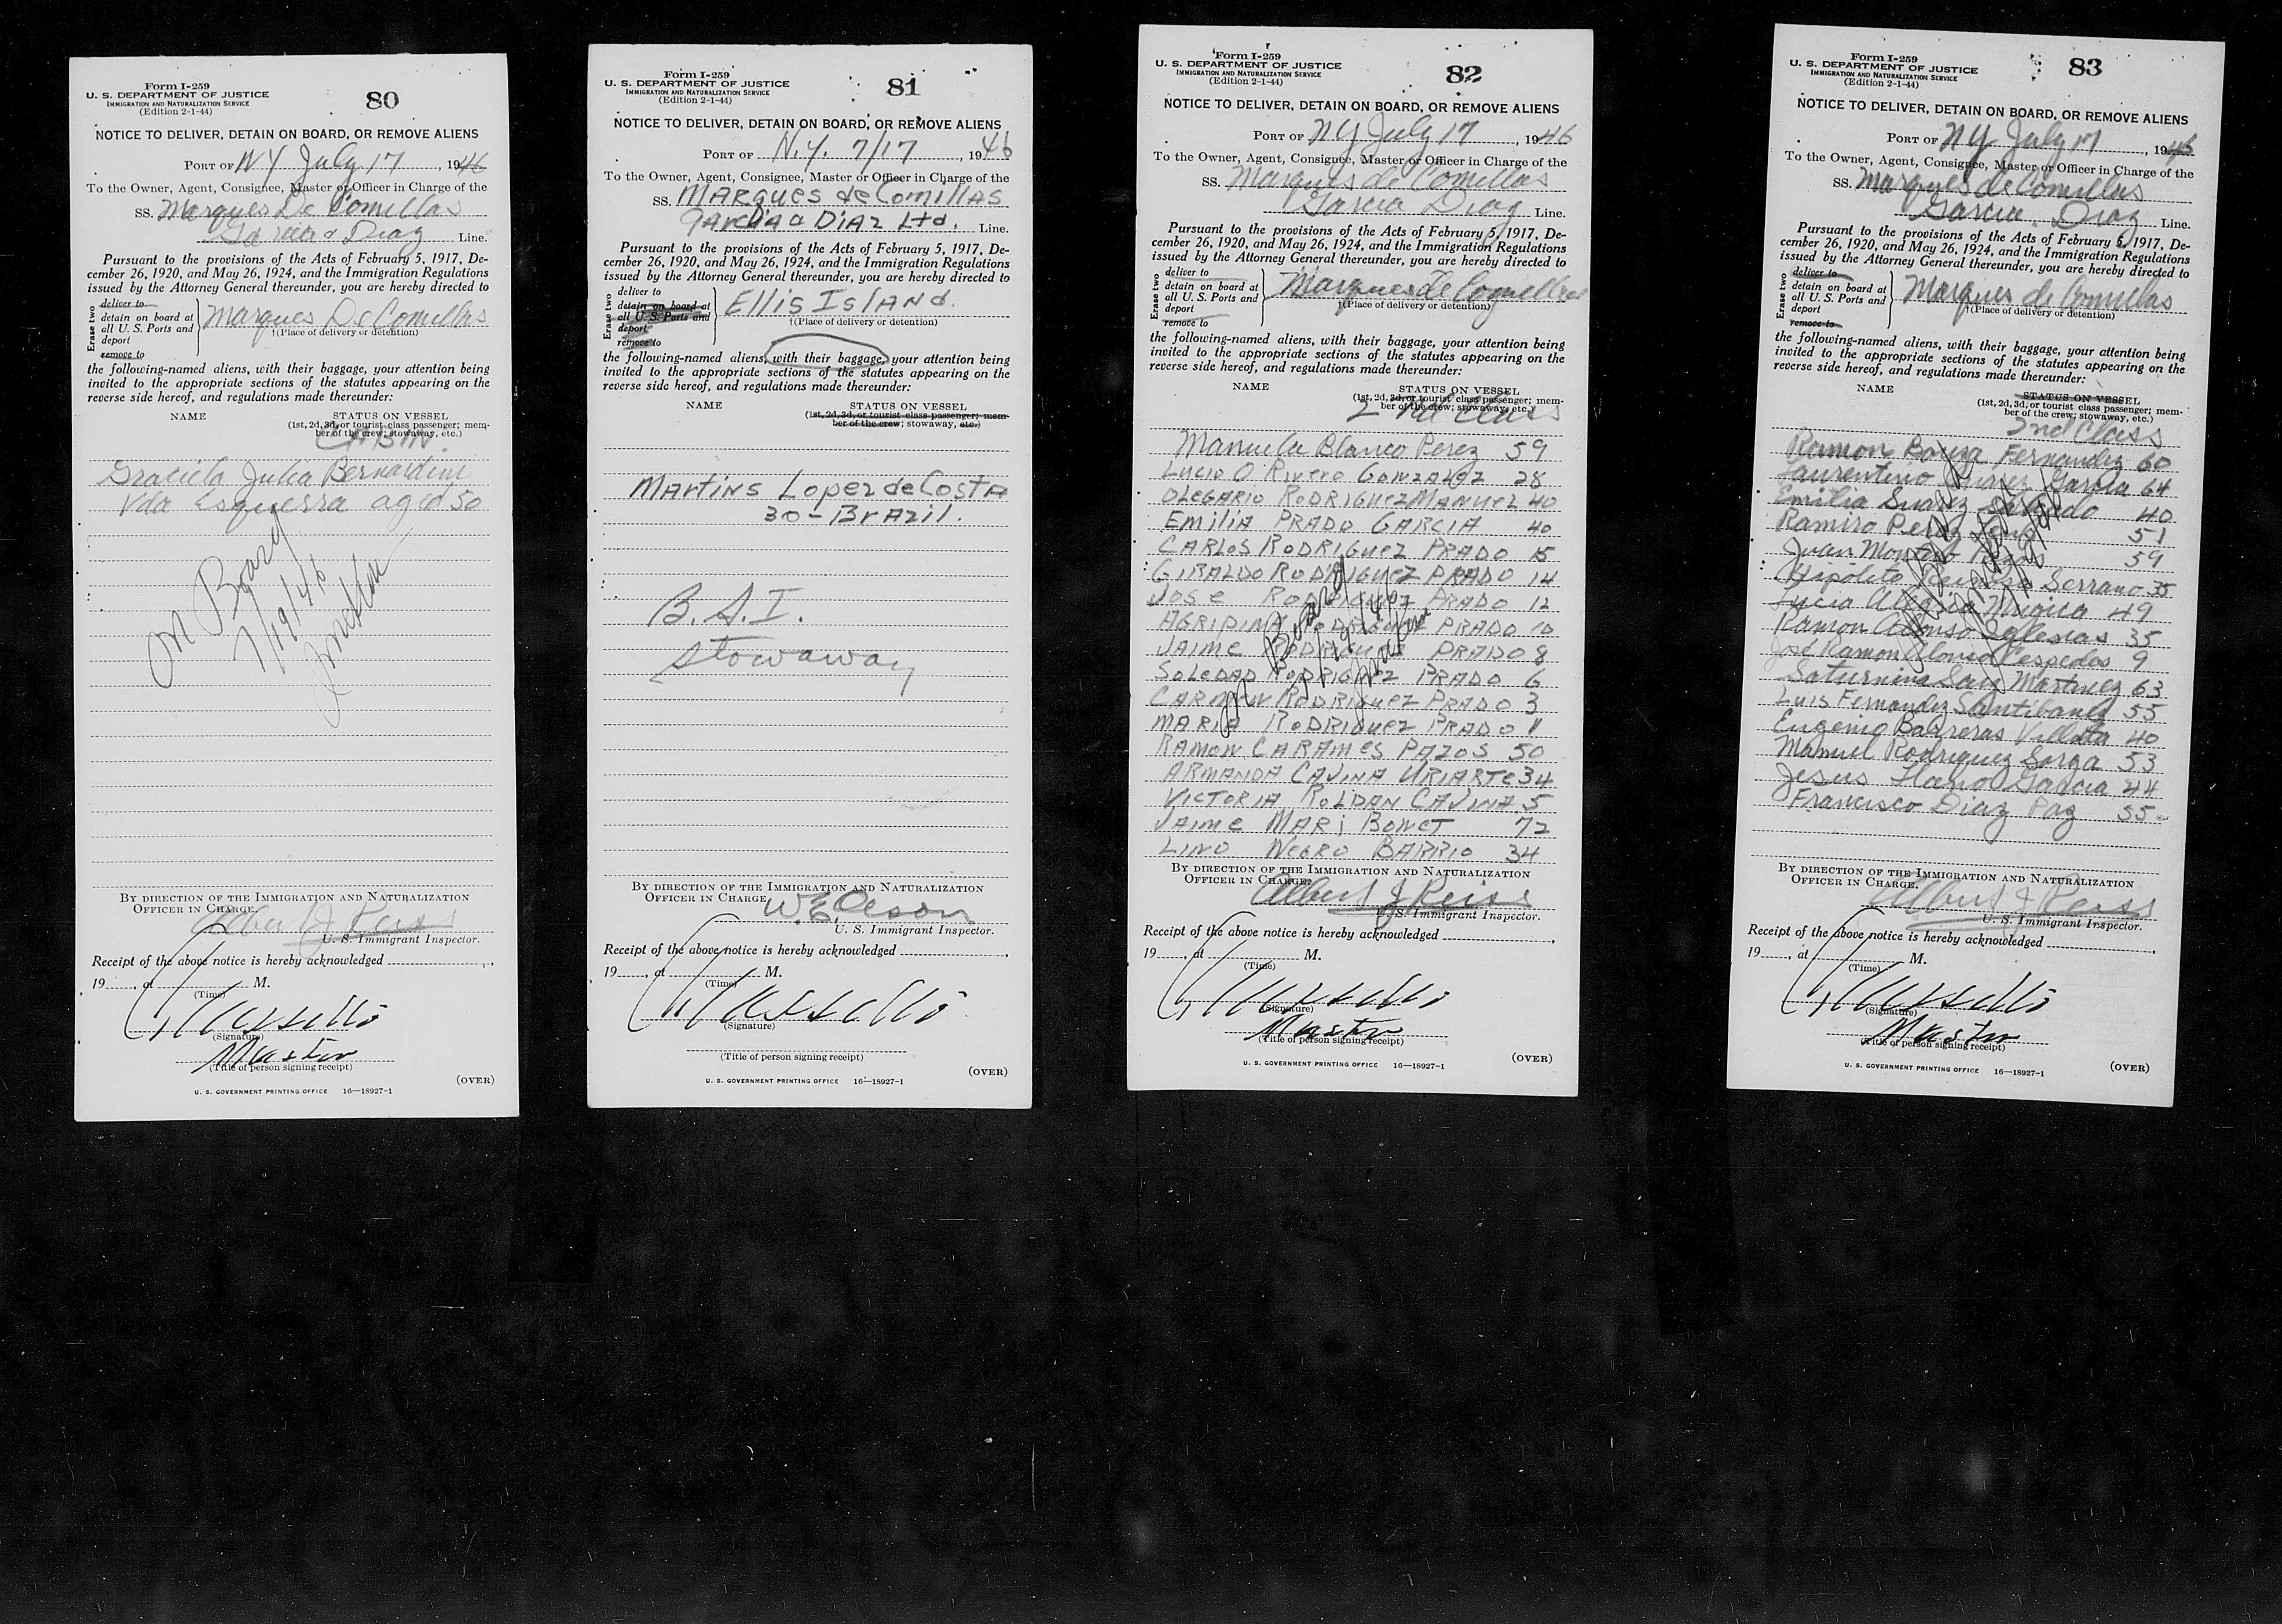 Form I-259
U. S. DEPARTMENT OF JUSTICE
IMMIGRATION AND NATURALIZATION SERVICE
(Edition 2-1-44)
80
NOTICE TO DELIVER, DETAIN ON BOARD, OR REMOVE ALIENS
PORT OF NY July 17, 1946
To the Owner, Agent, Consignee, Master or Officer in Charge of the
SS. Marques De Comillas
Garcia & Diaz Line.
Pursuant to the provisions of the Acts of February 5, 1917, De-
cember 26, 1920, and May 26, 1924, and the Immigration Regulations
issued by the Attorney General thereunder, you are hereby directed to
Erase two
deliver to
detain on board at
all U. S. Ports and
deport
remove to
Marques De Comillas
†(Place of delivery or detention)
the following-named aliens, with their baggage, your attention being
invited to the appropriate sections of the statutes appearing on the
reverse side hereof, and regulations made thereunder:
NAME STATUS ON VESSEL
(1st, 2d, 3d, or tourist class passenger; mem-
ber of the crew; stowaway, etc.)
CABIN
Graciela Julia Bernardini
Vda Esquerra aged 50
On Board
7/19/46
BY DIRECTION OF THE IMMIGRATION AND NATURALIZATION
OFFICER IN CHARGE.
Albert J Reiss
U. S. Immigrant Inspector.
Receipt of the above notice is hereby acknowledged
19 , at M.
(Time)
(Signature)
Master
(Title of person signing receipt)
(OVER)
U. S. GOVERNMENT PRINTING OFFICE 16—18927-1
Form I-259
U. S. DEPARTMENT OF JUSTICE
IMMIGRATION AND NATURALIZATION SERVICE
(Edition 2-1-44)
81
NOTICE TO DELIVER, DETAIN ON BOARD, OR REMOVE ALIENS
PORT OF N.Y. 7/17, 1946
To the Owner, Agent, Consignee, Master or Officer in Charge of the
SS. MARQUES de COMILLAS
GARCIA & DIAZ Ltd. Line.
Pursuant to the provisions of the Acts of February 5, 1917, De-
cember 26, 1920, and May 26, 1924, and the Immigration Regulations
issued by the Attorney General thereunder, you are hereby directed to
Erase two
deliver to
detain on board at
all U. S. Ports and
deport
remove to
Ellis Island.
†(Place of delivery or detention)
the following-named aliens, with their baggage, your attention being
invited to the appropriate sections of the statutes appearing on the
reverse side hereof, and regulations made thereunder:
NAME STATUS ON VESSEL
(1st, 2d, 3d, or tourist class passenger; mem-
ber of the crew; stowaway, etc.)
Martins Lopez de Costa
30 - Brazil.
B.S.I.
Stowaway
BY DIRECTION OF THE IMMIGRATION AND NATURALIZATION
OFFICER IN CHARGE.
W. E. Olson
U. S. Immigrant Inspector.
Receipt of the above notice is hereby acknowledged
19 , at M.
(Time)
(Signature)
(Title of person signing receipt)
(OVER)
U. S. GOVERNMENT PRINTING OFFICE 16—18927-1
Form I-259
U. S. DEPARTMENT OF JUSTICE
IMMIGRATION AND NATURALIZATION SERVICE
(Edition 2-1-44)
82
NOTICE TO DELIVER, DETAIN ON BOARD, OR REMOVE ALIENS
PORT OF NY July 17, 1946
To the Owner, Agent, Consignee, Master or Officer in Charge of the
SS. Marques de Comillas
Garcia Diaz Line.
Pursuant to the provisions of the Acts of February 5, 1917, De-
cember 26, 1920, and May 26, 1924, and the Immigration Regulations
issued by the Attorney General thereunder, you are hereby directed to
Erase two
deliver to
detain on board at
all U. S. Ports and
deport
remove to
Marques De Comillas
†(Place of delivery or detention)
the following-named aliens, with their baggage, your attention being
invited to the appropriate sections of the statutes appearing on the
reverse side hereof, and regulations made thereunder:
NAME STATUS ON VESSEL
(1st, 2d, 3d, or tourist class passenger; mem-
ber of the crew; stowaway, etc.)
2nd Class
Manuela Blanco Perez 59
LUCIO O. Rivero GONZALEZ 28
OLEGARIO RODRIGUEZ MANUEL 40
EMILIA PRADO GARCIA 40
CARLOS RODRIGUEZ PRADO 15
GIRALDO RODRIGUEZ PRADO 14
JOSE RODRIGUEZ PRADO 12
AGRIPINA RODRIGUEZ PRADO 10
JAIME RODRIGUEZ PRADO 8
SOLEDAD RODRIGUEZ PRADO 6
CARMEN RODRIGUEZ PRADO 3
MARIA RODRIGUEZ PRADO 1
RAMON CARAMES PAZOS 50
ARMANDA CAVINA URIARTE 34
VICTORIA ROLDAN CAVINA 5
JAIME MARI BONET 72
LINO NEGRO BARRIO 34
On Board
7/19/46
BY DIRECTION OF THE IMMIGRATION AND NATURALIZATION
OFFICER IN CHARGE.
Albert J Reiss
U. S. Immigrant Inspector.
Receipt of the above notice is hereby acknowledged
19 , at M.
(Time)
(Signature)
Master
(Title of person signing receipt)
(OVER)
U. S. GOVERNMENT PRINTING OFFICE 16—18927-1
Form I-259
U. S. DEPARTMENT OF JUSTICE
IMMIGRATION AND NATURALIZATION SERVICE
(Edition 2-1-44)
83
NOTICE TO DELIVER, DETAIN ON BOARD, OR REMOVE ALIENS
PORT OF NY July 17, 1946
To the Owner, Agent, Consignee, Master or Officer in Charge of the
SS. Marques de Comillas
Garcia Diaz Line.
Pursuant to the provisions of the Acts of February 5, 1917, De-
cember 26, 1920, and May 26, 1924, and the Immigration Regulations
issued by the Attorney General thereunder, you are hereby directed to
Erase two
deliver to
detain on board at
all U. S. Ports and
deport
remove to
Marques de Comillas
†(Place of delivery or detention)
the following-named aliens, with their baggage, your attention being
invited to the appropriate sections of the statutes appearing on the
reverse side hereof, and regulations made thereunder:
NAME STATUS ON VESSEL
(1st, 2d, 3d, or tourist class passenger; mem-
ber of the crew; stowaway, etc.)
2nd Class
Ramon Bouza Fernandez 60
Laurentino Suarez Garcia 64
Emilia Suarez 40
Ramiro Perez 51
Juan 59
Hipolito Serrano 35
Lucia Mugica 49
Ramon Alonso Iglesias 35
Jose Ramon Alonso Cespedes 9
Saturnino San Martinez 63
Luis Fernandez Santibanez 55
Eugenio Balreras Villota 40
Manuel Rodriguez Sorga 53
Jesus Llano Garcia 44
Francisco Diaz Paz 55
BY DIRECTION OF THE IMMIGRATION AND NATURALIZATION
OFFICER IN CHARGE.
Albert J Reiss
U. S. Immigrant Inspector.
Receipt of the above notice is hereby acknowledged
19 , at M.
(Time)
(Signature)
Master
(Title of person signing receipt)
(OVER)
U. S. GOVERNMENT PRINTING OFFICE 16—18927-1